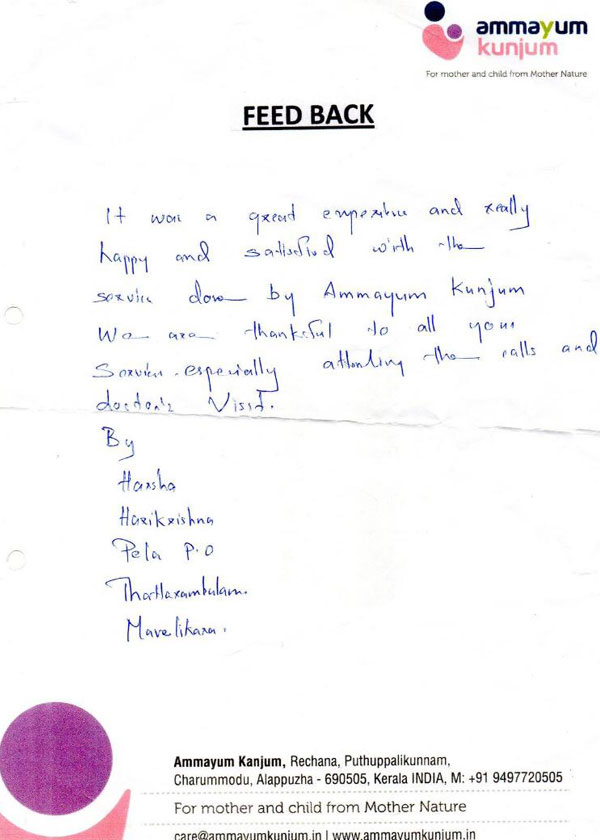 ammayum
kunjum
For mother and child from Mother Nature
FEED BACK
It was a great experience and really
happy and satisfied with the
service done by Ammayum Kunjum
We are thankful to all your
Service especially attending the calls and
doctor's Visit.
By
Harsha
Harikrishna
Pela P.O
Thattarambalam.
Mavelikara.
Ammayum Kanjum, Rechana, Puthuppalikunnam,
Charummodu, Alappuzha - 690505, Kerala INDIA, M: +91 9497720505
For mother and child from Mother Nature
care@ammayumkunjum.in | www.ammayumkunjum.in